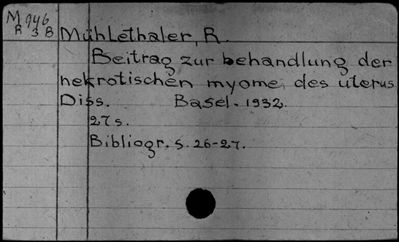 M946
R3B
Mühlethaler, R.
Beitrag zur behandlung der
nekrotischen myome des uterus
Diss. Basel. 1932.
27s.
Bibliogr. s. 26-27.